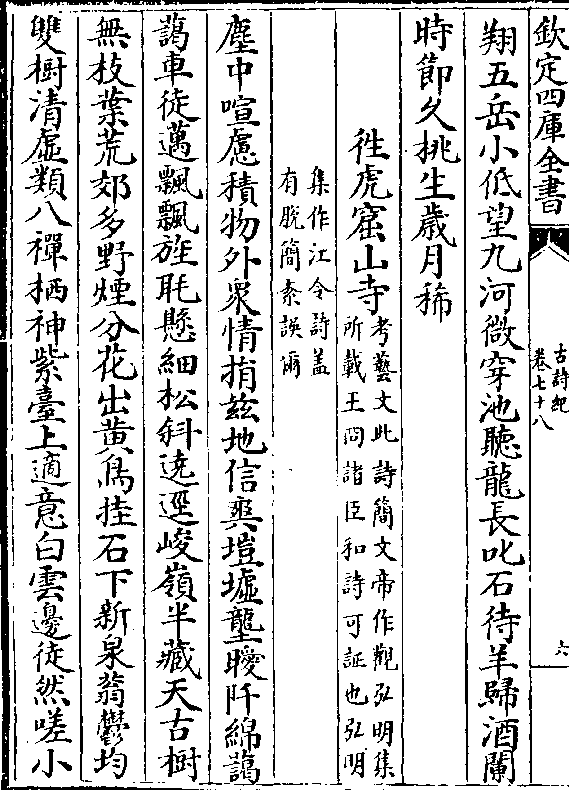 欽定四庫全書
古詩紀
卷七十八
六
翔五岳小低望九河微穿池聽龍長叱石待羊歸酒闌
時節久桃生歲月稀
徃虎窟山寺
考藝文此詩簡文帝作觀弘明集
所載王冏諸臣和詩可証也弘明
集作江令詩葢
有脫簡素誤爾
塵中喧慮積物外衆情捐兹地信爽塏墟壟曖阡綿藹
藹車徒邁飄飄旌眊懸細松斜遶逕峻嶺半藏天古樹
無枝葉荒郊多野煙分花出黄鳥挂石下新泉蓊鬱均
雙樹清虚類八禪栖神紫臺上適意白雲邊徒然嗟小